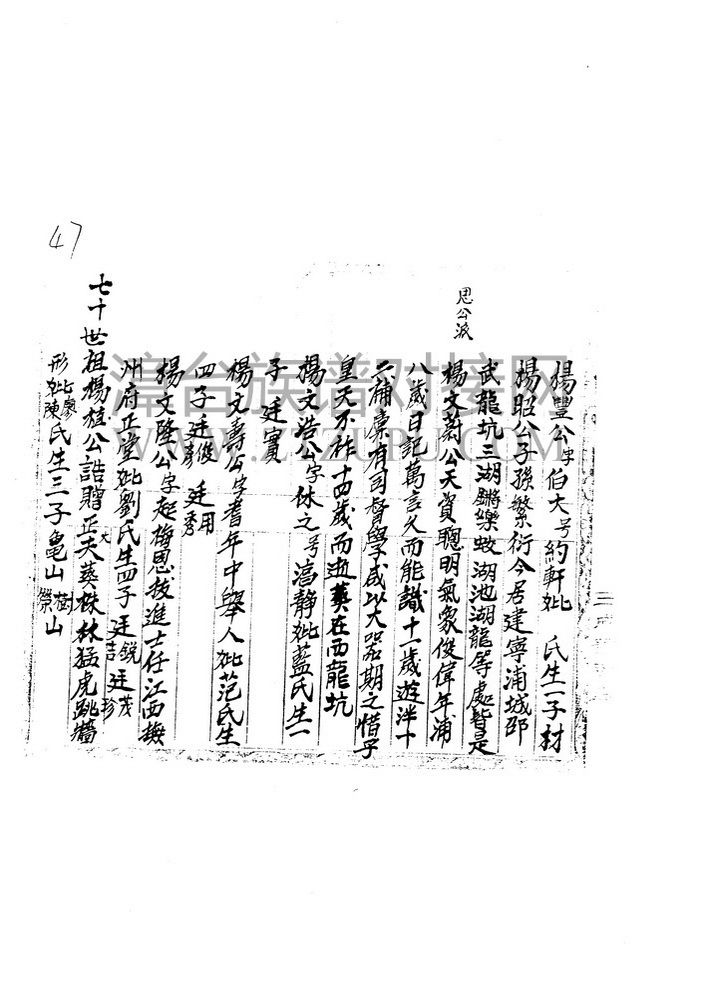 47
思公派
楊豐公字伯大号約軒妣 氏生一子材
楊昭公子孫繁衍今居建寧浦城邵
武龍坑三湖鏘樂蛟湖池湖龍等處皆是
楊文蔚公天資聰明氣象俊偉年浦
八歲日記萬言久而能識十一歲遊泮十
二補廩有司督學咸以大器期之惜乎
皇天不祚十四歲而逝葬在西龍坑
楊文浩公字休之号淓靜妣藍氏生一
子廷實
楊文壽公字耆年中舉人妣范氏生
四子廷俊廷彥廷用廷秀
楊文隆公字起梅恩授進士任江西撫
州府正堂妣劉氏生四子廷銳吉廷茂珍
七十世祖楊植公誥贈正大夫葬株林猛虎跳牆
形妣廖陳氏生三子龜山樹山榮山
漳台族谱对接网
WWW.ZTZUPU.COM